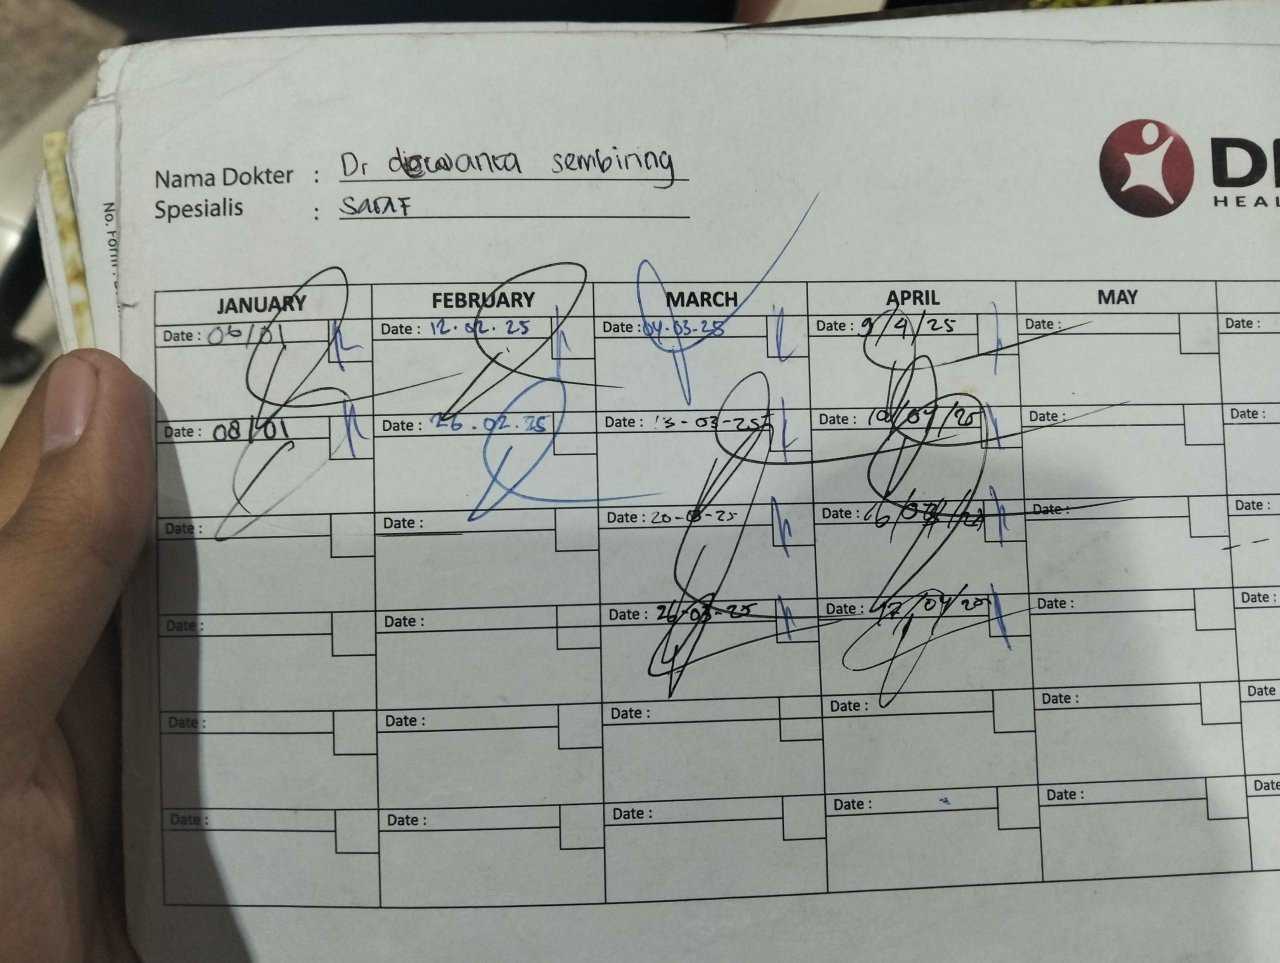 Nama Dokter : Dr sembiring
Spesialis : saraf
DI
HEAL
No. Form
JANUARY FEBRUARY MARCH APRIL MAY
Date : 06/01 Date : 12.02.25 Date : 04-03-25 Date : 9/4/25 Date : Date :
Date : 08/01 Date : 26.02.25 Date : 13-03-25 Date : 10/04/25 Date : Date :
Date : Date : Date : 20-03-25 Date : Date : Date :
Date : Date : Date : 26-03-25 Date : 17/04/25 Date : Date :
Date : Date : Date : Date : Date : Date
Date : Date : Date : Date : Date : Date